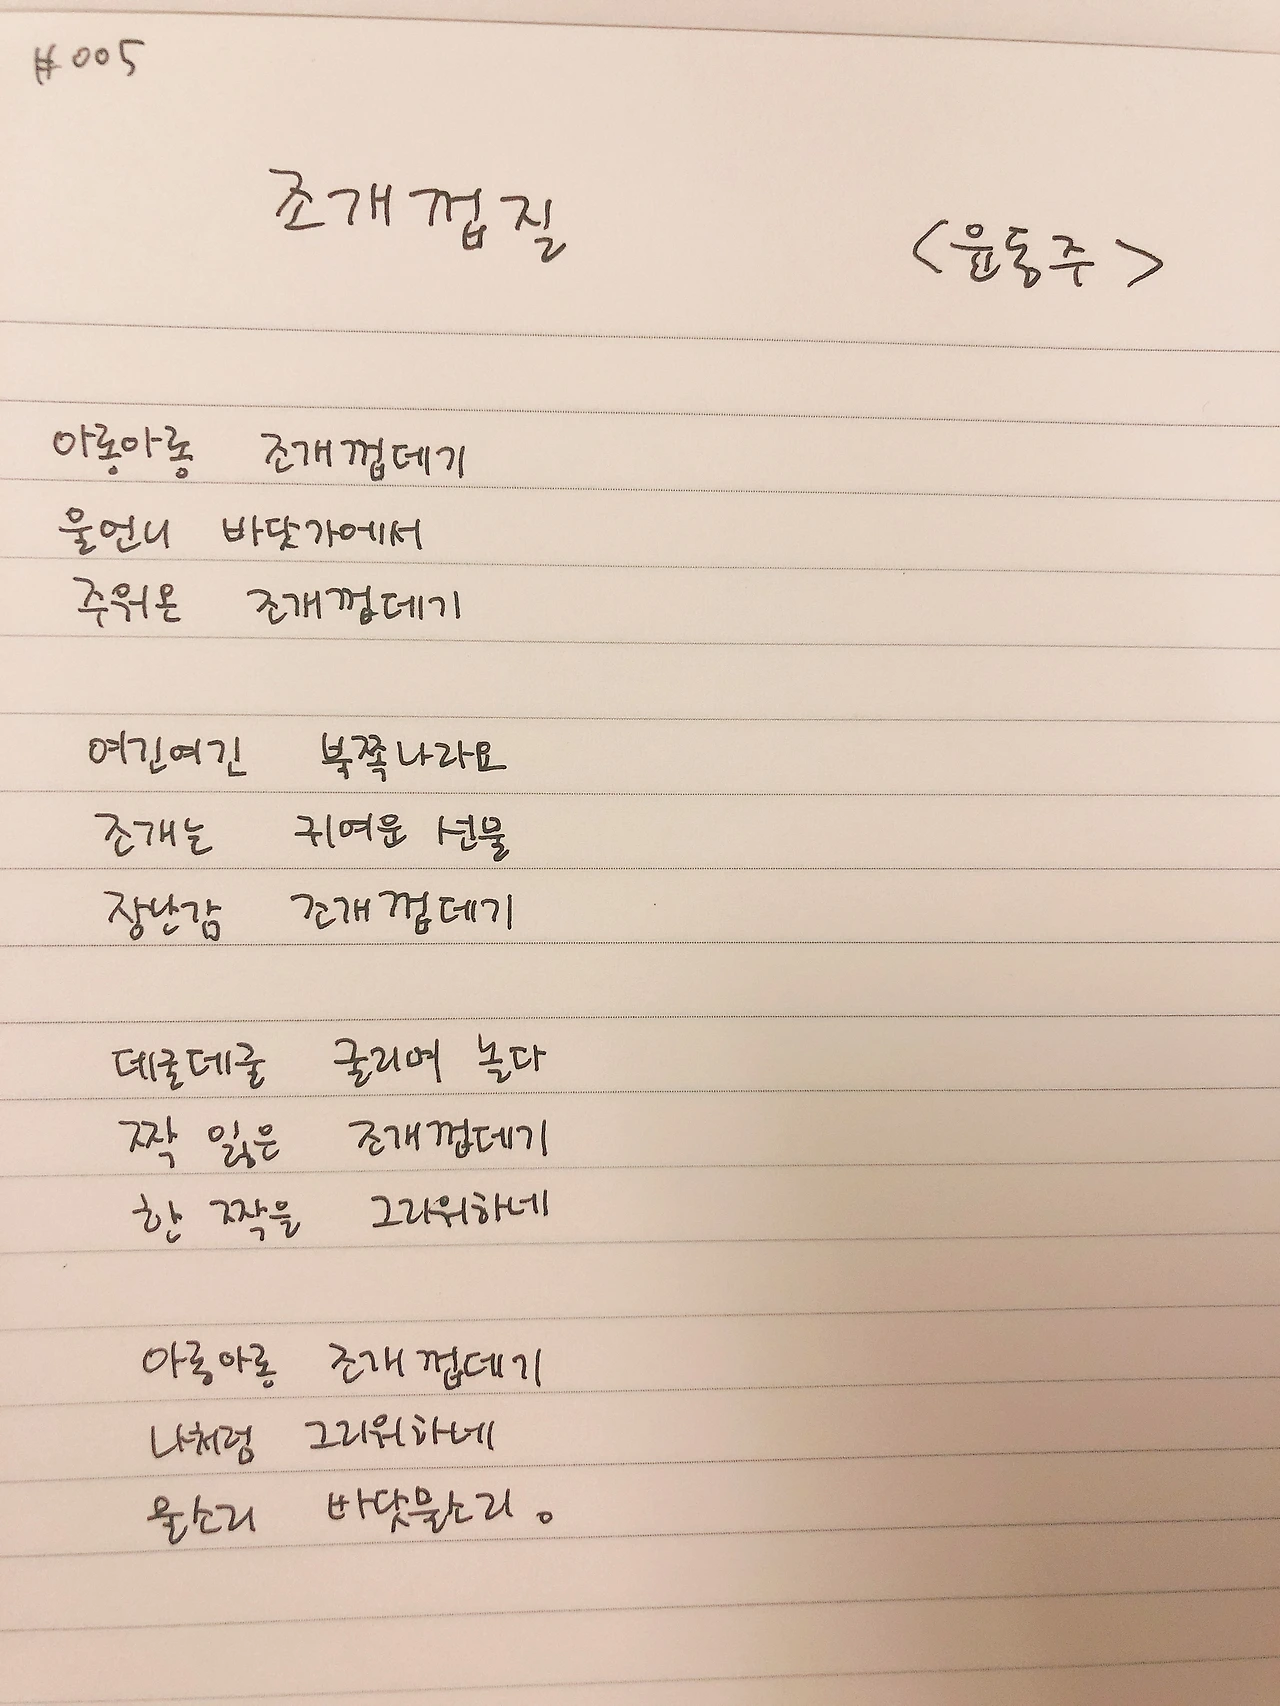 #005
조개껍질
<윤동주>
아롱아롱 조개껍데기
울언니 바닷가에서
주워온 조개껍데기
여긴여긴 북쪽나라요
조개는 귀여운 선물
장난감 조개껍데기
데굴데굴 굴리며 놀다
짝 잃은 조개껍데기
한 짝을 그리워하네
아롱아롱 조개껍데기
나처럼 그리워하네
물소리 바닷물소리。